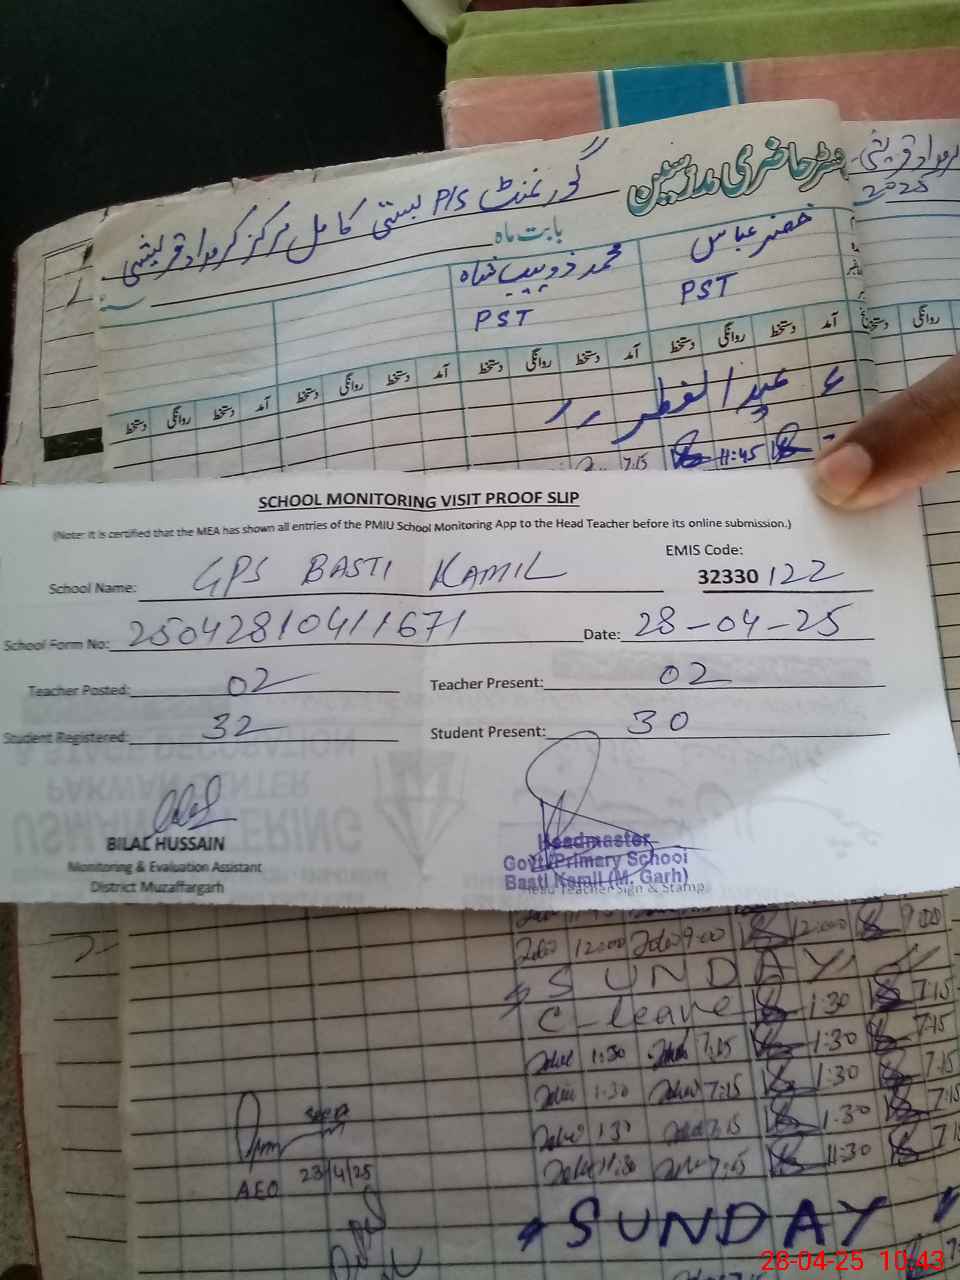 رجسٹر حاضری مدرسین
گورنمنٹ P/S بستی کامل مرکز کرمداد قریشی
2025
بابت ماہ
خضر عباس
PST
محمد ذوہیب شاہ
PST
آمد دستخط روانگی دستخط آمد دستخط روانگی دستخط آمد دستخط روانگی دستخط آمد دستخط روانگی دستخط
روانگی دستخط
عید الفطر
7:15 11:45
SCHOOL MONITORING VISIT PROOF SLIP
(Note: It is certified that the MEA has shown all entries of the PMIU School Monitoring App to the Head Teacher before its online submission.)
School Name: GPS BASTI KAMIL EMIS Code: 32330122
School Form No: 25042810411671 Date: 28-04-25
Teacher Posted: 02 Teacher Present: 02
Student Registered: 32 Student Present: 30
BILAL HUSSAIN
Monitoring & Evaluation Assistant
District Muzaffargarh
Headmaster
Govt. Primary School
Basti Kamil (M. Garh)
Head Teacher Sign & Stamp
USMAN CATERING
PAKWAN CENTER
& STAGE DECORATION
12:00 9:00 12:00 9:00
SUNDAY
C-leave 1:30 7:15
1:30 7:15 1:30 7:15
1:30 7:15 1:30 7:15
1:30 7:15 1:30 7:15
11:30 7:15 11:30
seen
AEO 23/4/25
SUNDAY
28-04-25 10:43